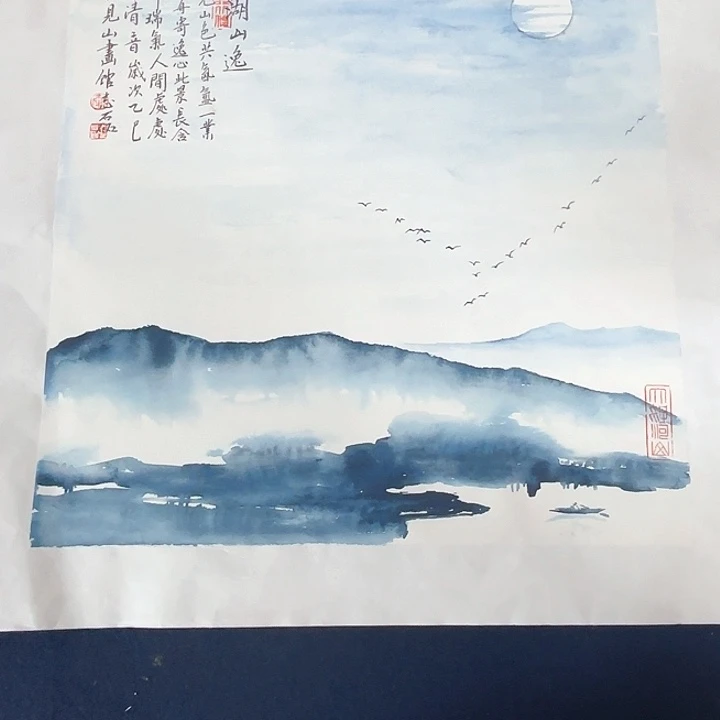 湖山逸
山色共氤氳一葉
舟寄逸心此景長含
瑞氣人間處處
清音歲次乙巳
見山畫館志石